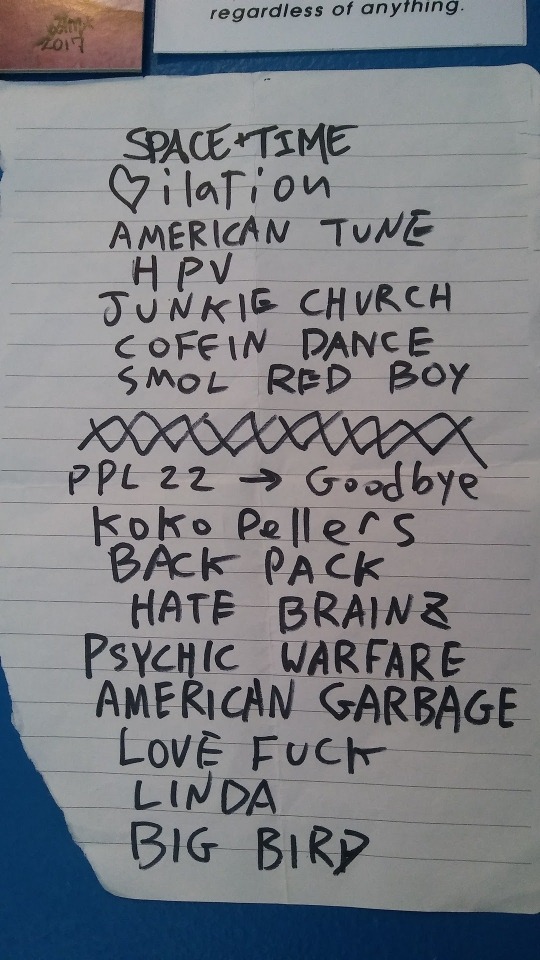 2017
regardless of anything.
SPACE+TIME
♡ilation
AMERICAN TUNE
HPV
JUNKIE CHURCH
COFFIN DANCE
SMOL RED BOY
PPL 22 → Goodbye
KoKo Pellers
BACK PACK
HATE BRAINZ
PSYCHIC WARFARE
AMERICAN GARBAGE
LOVE FUCK
LINDA
BIG BIRD